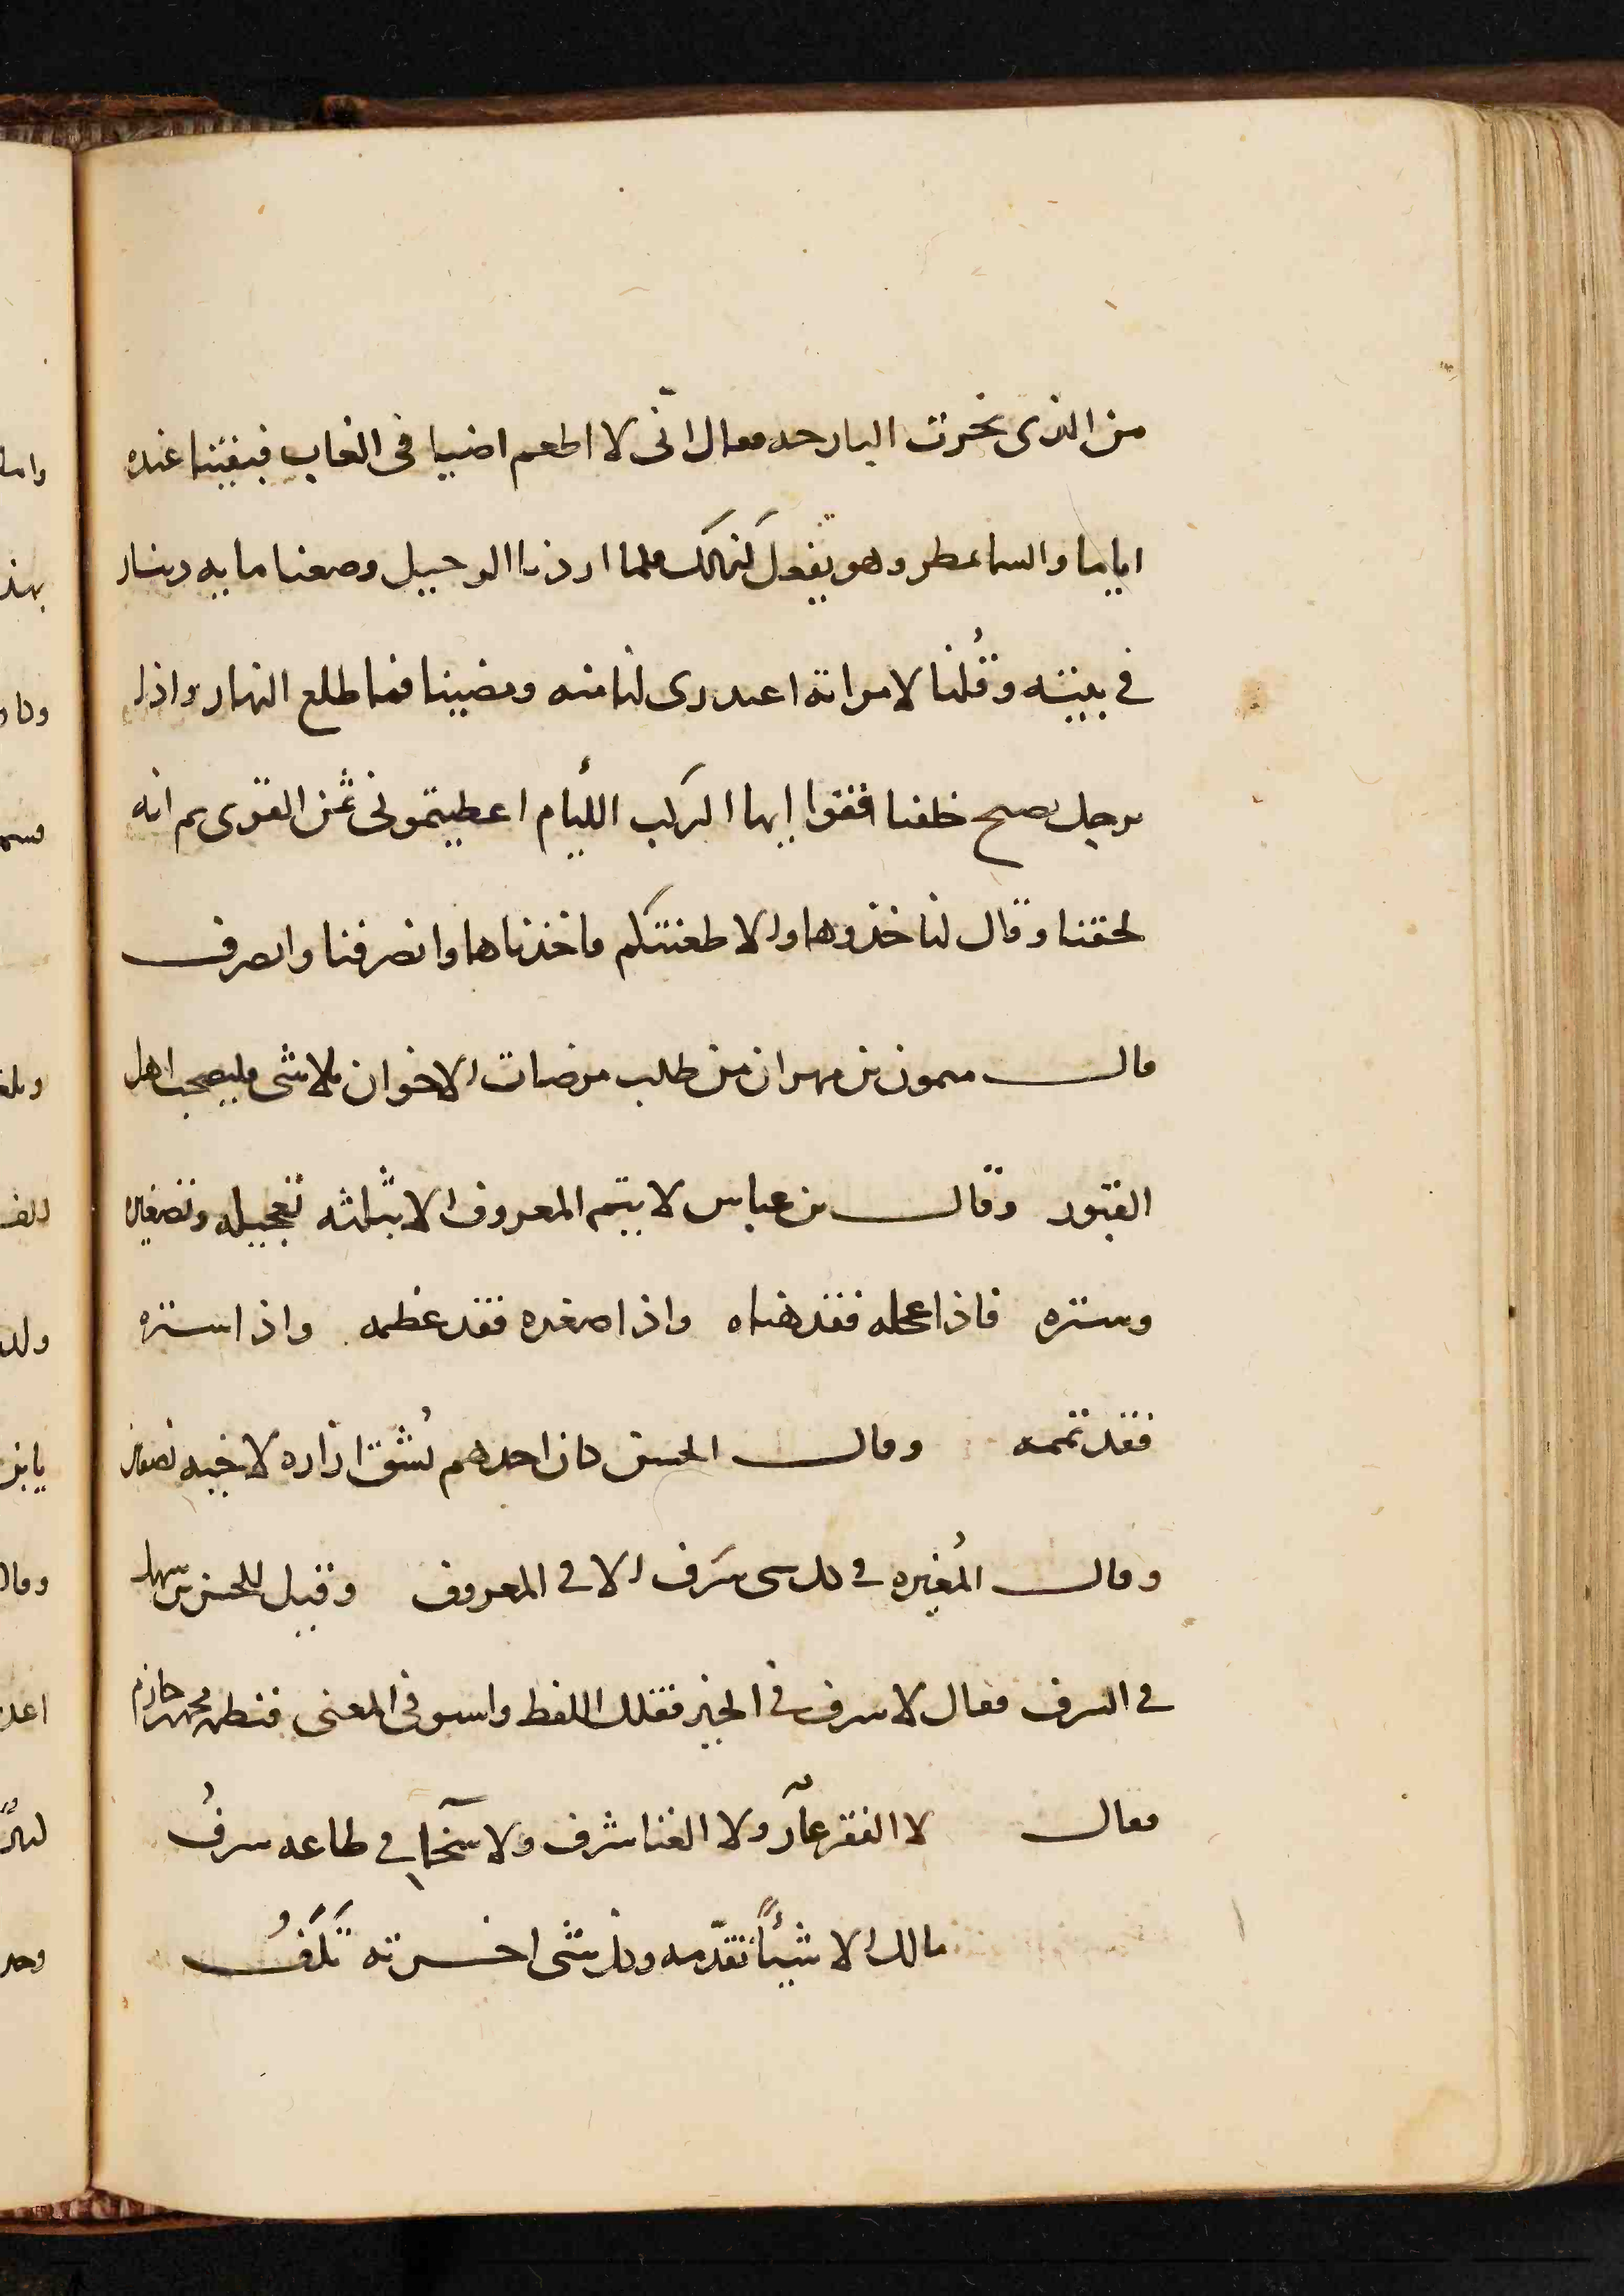 من الذى نحرت البارحه فقال انى لا اطعم اضيافى الغاب فبقينا عنده
اياما والسما تمطر وهو يفعل كذلك فلما اردنا الرحيل وضعنا مايه دينار
فى بيته وقلنا لامراته اعتدرى لنا منه ومضينا فما طلع النهار واذا
برجل يصيح خلفنا قفوا ايها الركب الليام اعطيتمونى ثمن القرى ثم انه
لحقنا وقال لنا خذوها والا طعنتكم فاخذناها وانصرفنا وانصرف
قال ميمون بن مهران من طلب مرضات الاخوان بلا شى فليصحب اهل
القبور وقال بن عباس لا يتم المعروف الا بثلثه تعجيله وتصغيره
وستره فاذا عجله فقد هناه واذا صغره فقد عظمه واذا استره
فقد تممه وقال الحسن كان احدهم يشق ازاره لاخيه نصفين
وقال المغيره فى كل شى سرف الا فى المعروف وقيل للحسن بن سهل
فى السرف فقال لا سرف فى الخير فقلب اللفظ واستوفى المعنى فنظمه محمد بن حازم
فقال لا الفقر عار ولا الغنا شرف ولا سخآ فى طاعه سرف
مالك الا شيئا تقدمه وكل شى اخرته تلف